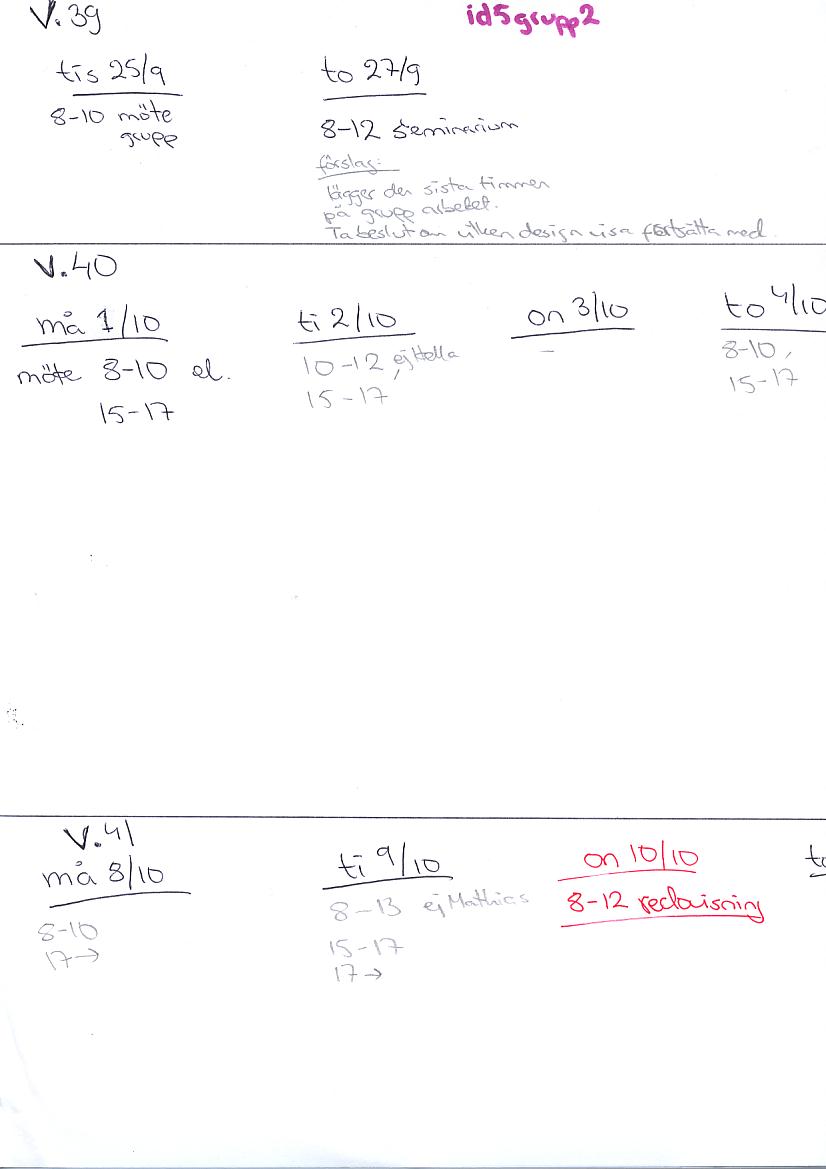 V.39
id5grupp2
tis 25/9
to 27/9
8-10 möte
grupp
8-12 seminarium
förslag:
lägger den sista timmen
på grupp arbetet.
Ta beslut om vilken design vi sa fortsätta med.
V.40
må 1/10
ti 2/10
on 3/10
to 4/10
möte 8-10 el.
15-17
10-12, ej Hella
15-17
-
8-10,
15-17
V.41
må 8/10
ti 9/10
on 10/10
to
8-10
17→
8-13 ej Mathias
15-17
17→
8-12 redovisning